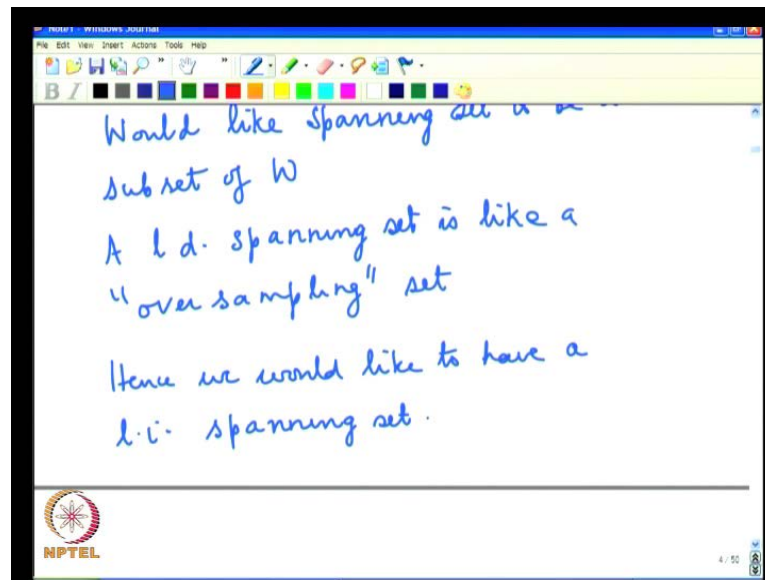 Note1 - Windows Journal
File Edit View Insert Actions Tools Help
B I
Would like Spanning
subset of W
A l d. spanning set is like a
"over sampling" set
Hence we would like to have a
l.i. spanning set.
NPTEL
4 / 50